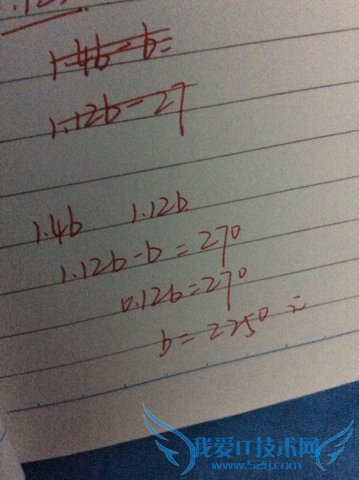 1.4b-b=
1.12b-27
1.4b 1.12b
1.12b-b=270
0.12b=270
b=2250元
我爱IT技术网
www.52ij.com